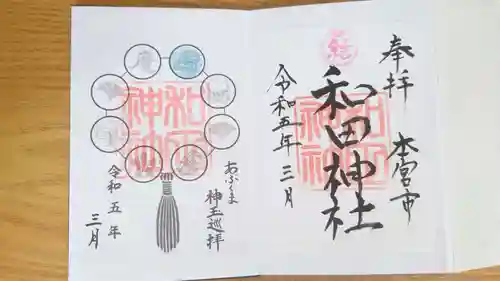 奉拝
本宮市
和田神社
令和五年三月
和田神社
あぶくま
神玉巡拝
令和五年
三月
和田神社